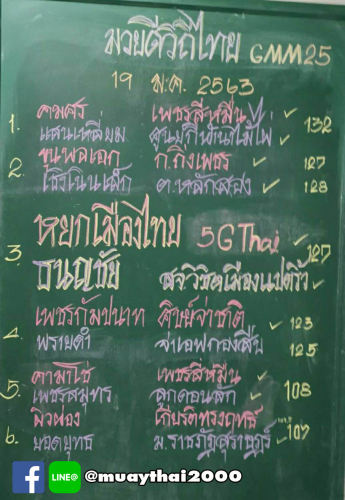 มวยดีวิถีไทย GMM25
19 ม.ค. 2563
1. คมศร เพชรสี่หมื่น ✓ 132
แสนเหลี่ยม ศูนย์กีฬาไม้ไผ่ ✓
2. ขุนพลเอก ก.กิ่งเพชร ✓ 127
โรงเนินเด็ก ต.หลักสอง ✓ 128
3. หยกเมืองไทย 5G Thai ✓ 127
ธนญชัย สจ.วิชิตเมืองแปดริ้ว ✓
4. เพชรกัมปนาท ศิษย์จ่าชาติ ✓ 123
พรายดำ จ่าเอฟกองสืบ 125
5. คามาโช่ เพชรสี่หมื่น ✓ 108
เพชรสมุทร ลูกดอนสัก ✓
6. ผิวทอง เกียรติทรงฤทธิ์ 107
ยอดยุทธ ม.ราชภัฏสุราษฎร์ ✓
f LINE@ @muaythai2000